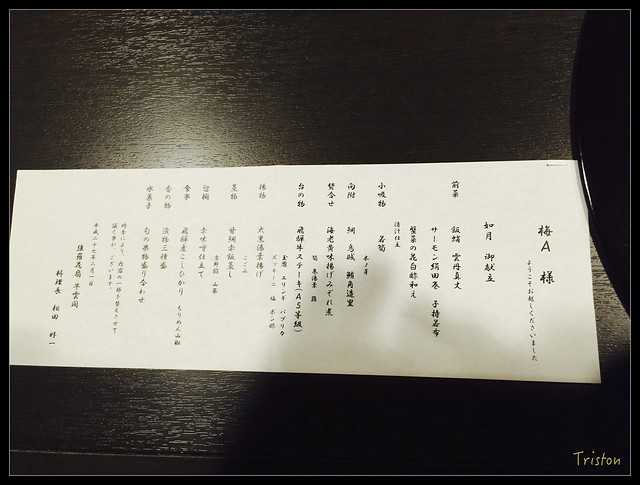 梅A 様
ようこそお越しくださいました
如月 御献立
前菜 飯蛸 雲丹真丈
サーモン絹田巻 子持若布
蟹菜の花白酢和え
清汁仕立
小吸物 若筍
木ノ芽
向附 鯛 烏賊 鮪角造里
焚合せ 海老黄味揚げみぞれ煮
筍 巻湯葉 蕗
台の物 飛騨牛ステーキ(A5等級)
玉葱 エリンギ パプリカ
ズッキーニ 塩 ポン酢
揚物 大黒湯葉揚げ
こごみ
蒸物 甘鯛赤飯蒸し
吉野餡 山葵
留椀 赤味噌仕立て
食事 飛騨産こしひかり ちりめん山椒
香の物 漬物三種盛
水菓子 旬の果物盛り合わせ
時季により、内容の一部を替えさせて
頂く事が、ございます。
平成二十七年二月一日
佳羅花扇 早雲閣
料理長 相田 好一
Triston